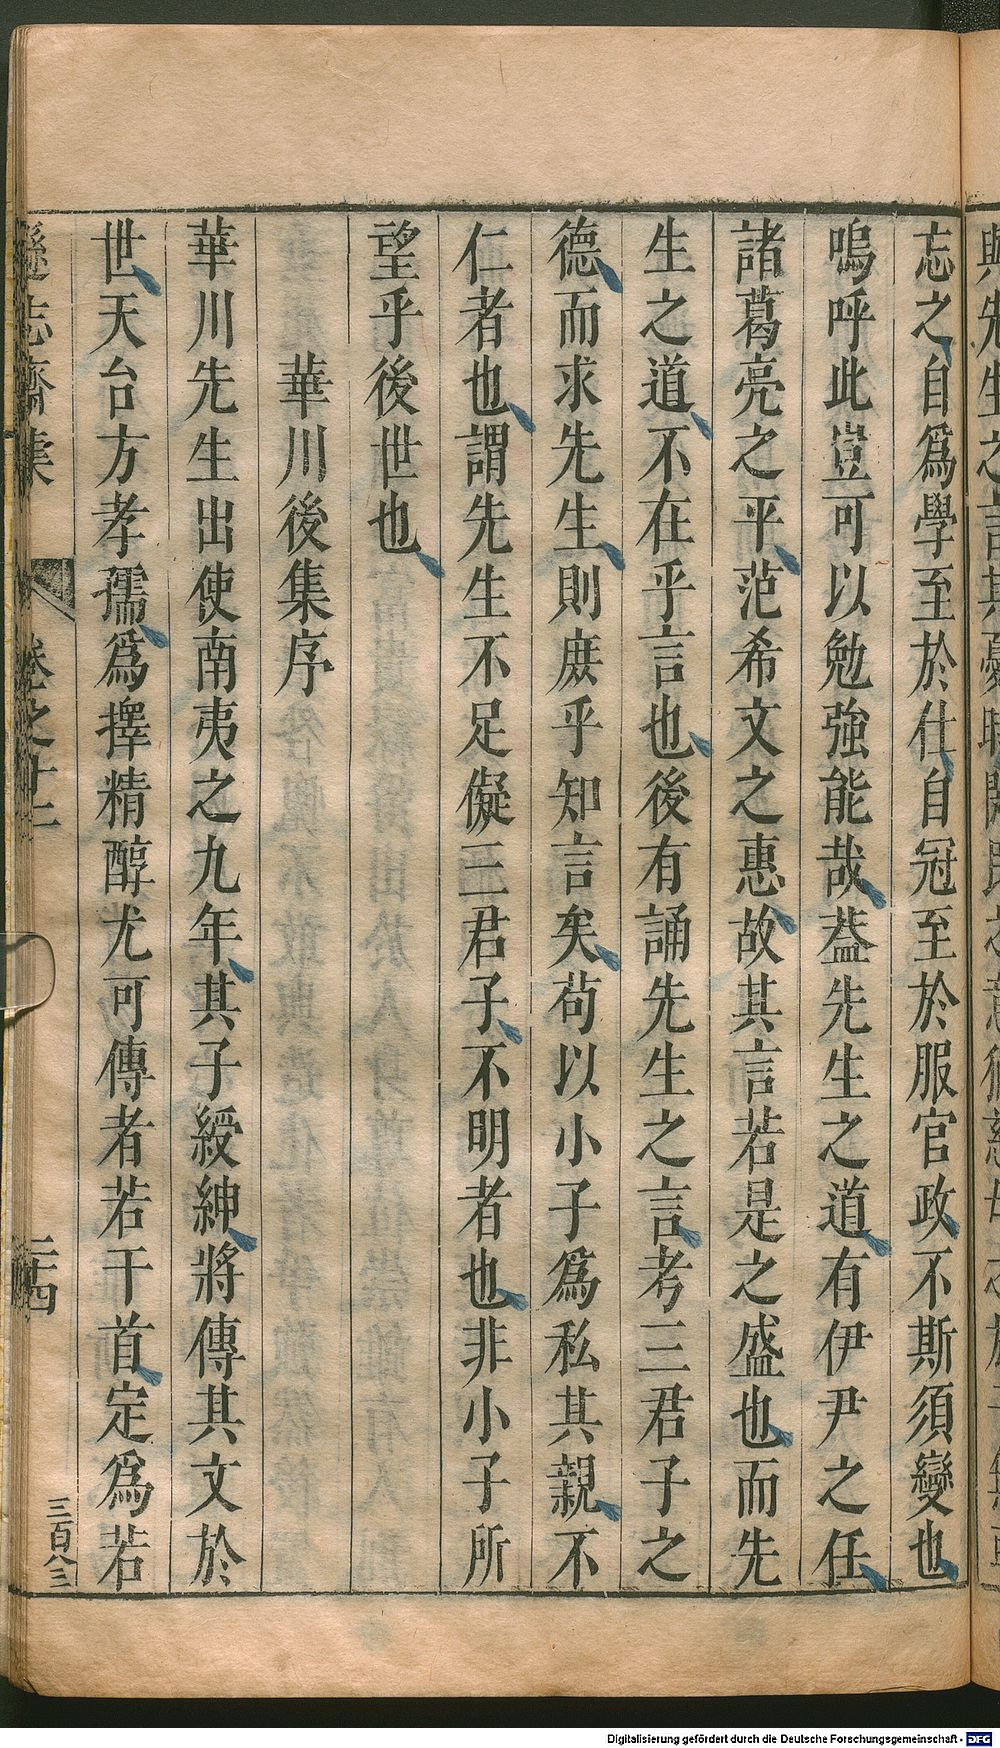 忘之自爲學至於仕自冠至於服官政不斯須變也
嗚呼此豈可以勉強能哉葢先生之道有伊尹之任
諸葛亮之平范希文之惠故其言若是之盛也而先
生之道不在乎言也後有誦先生之言考三君子之
德而求先生則庶乎知言矣苟以小子爲私其親不
仁者也謂先生不足儗三君子不明者也非小子所
望乎後世也
華川後集序
華川先生出使南夷之九年其子綬紳將傳其文於
世天台方孝孺爲擇精醇尤可傳者若干首定爲若
遜志齋集
卷之十二
二十四
三百八三
Digitalisierung gefördert durch die Deutsche Forschungsgemeinschaft - DFG